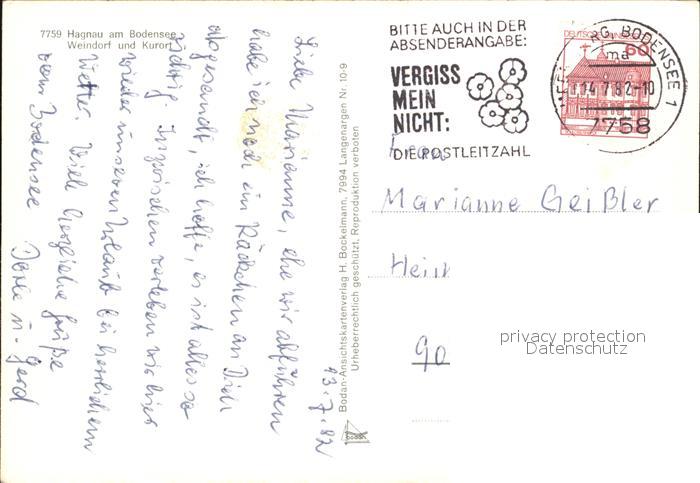 7759 Hagnau am Bodensee
Weindorf und Kurort
13.7.82
Liebe Marianne, ehe wir abfuhren
habe ich noch ein Päckchen an Dich
abgesandt, ich hoffe, es ist alles so
richtig. Inzwischen verleben wir hier
wieder unseren Urlaub bei herrlichem
Wetter. Viele herzliche Grüße
vom Bodensee
u. Gerd
Bodan-Ansichtskartenverlag H. Bockelmann, 7994 Langenargen Nr. 10-9
Urheberrechtlich geschützt, Reproduktion verboten
BITTE AUCH IN DER
ABSENDERANGABE:
VERGISS
MEIN
NICHT:
DIE POSTLEITZAHL
RG, BODENSEE 1
ma
14.7.82-10
7758
60
Frau
Marianne Geißler
Hein
90
privacy protection
Datenschutz